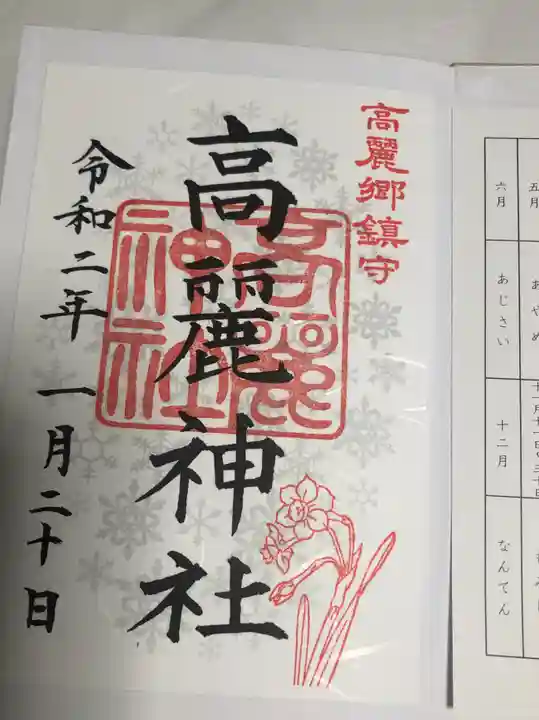 高麗郷鎮守
高麗神社
高麗神社
令和二年 一月二十日
五月
あやめ
十一月十一日〜三十日
六月
あじさい
十二月
なんてん